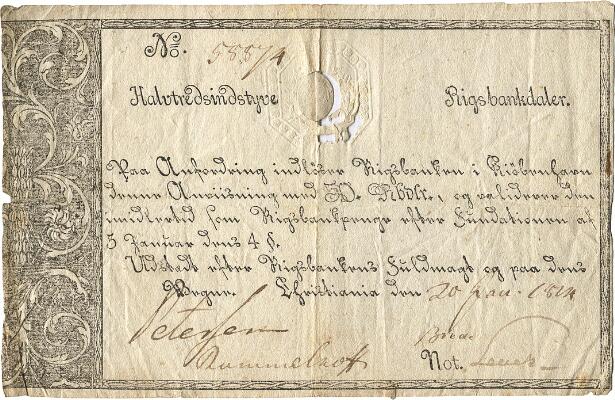 No. 58874
Halvtredsindstyve Rigsbankdaler.
Paa Anfordring indløser Rigsbanken i Kiöbenhavn
denne Anviisning med 50. Rbdlr., og validerer den
imidlertid som Rigsbankpenge efter Fundationen af
5 Januar dens 4 §.
Udstedt efter Rigsbankens Fuldmagt og paa dens
Vegne. Christiania den 20 Jan. 1814
Petersen
Rummelhoff
Not.